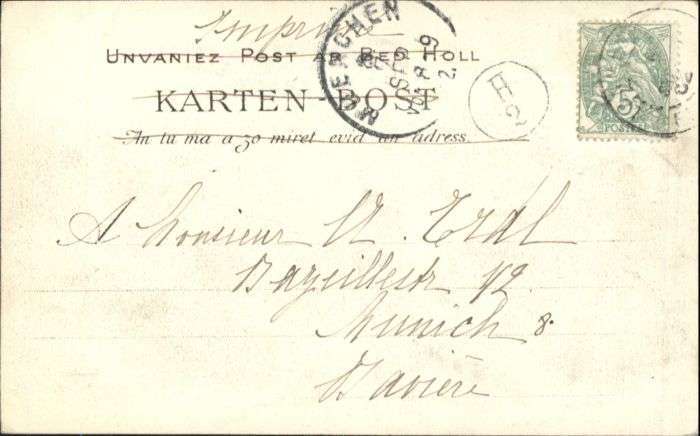 Imprimé
UNVANIEZ POST AR BED HOLL
KARTEN-POST
An tu ma a zo miret evid an adress.
MUENCHEN
SEP
H
2
POSTES
A Monsieur A. Erdl
Bazeillestr 1/2
Munich 8.
Bavière